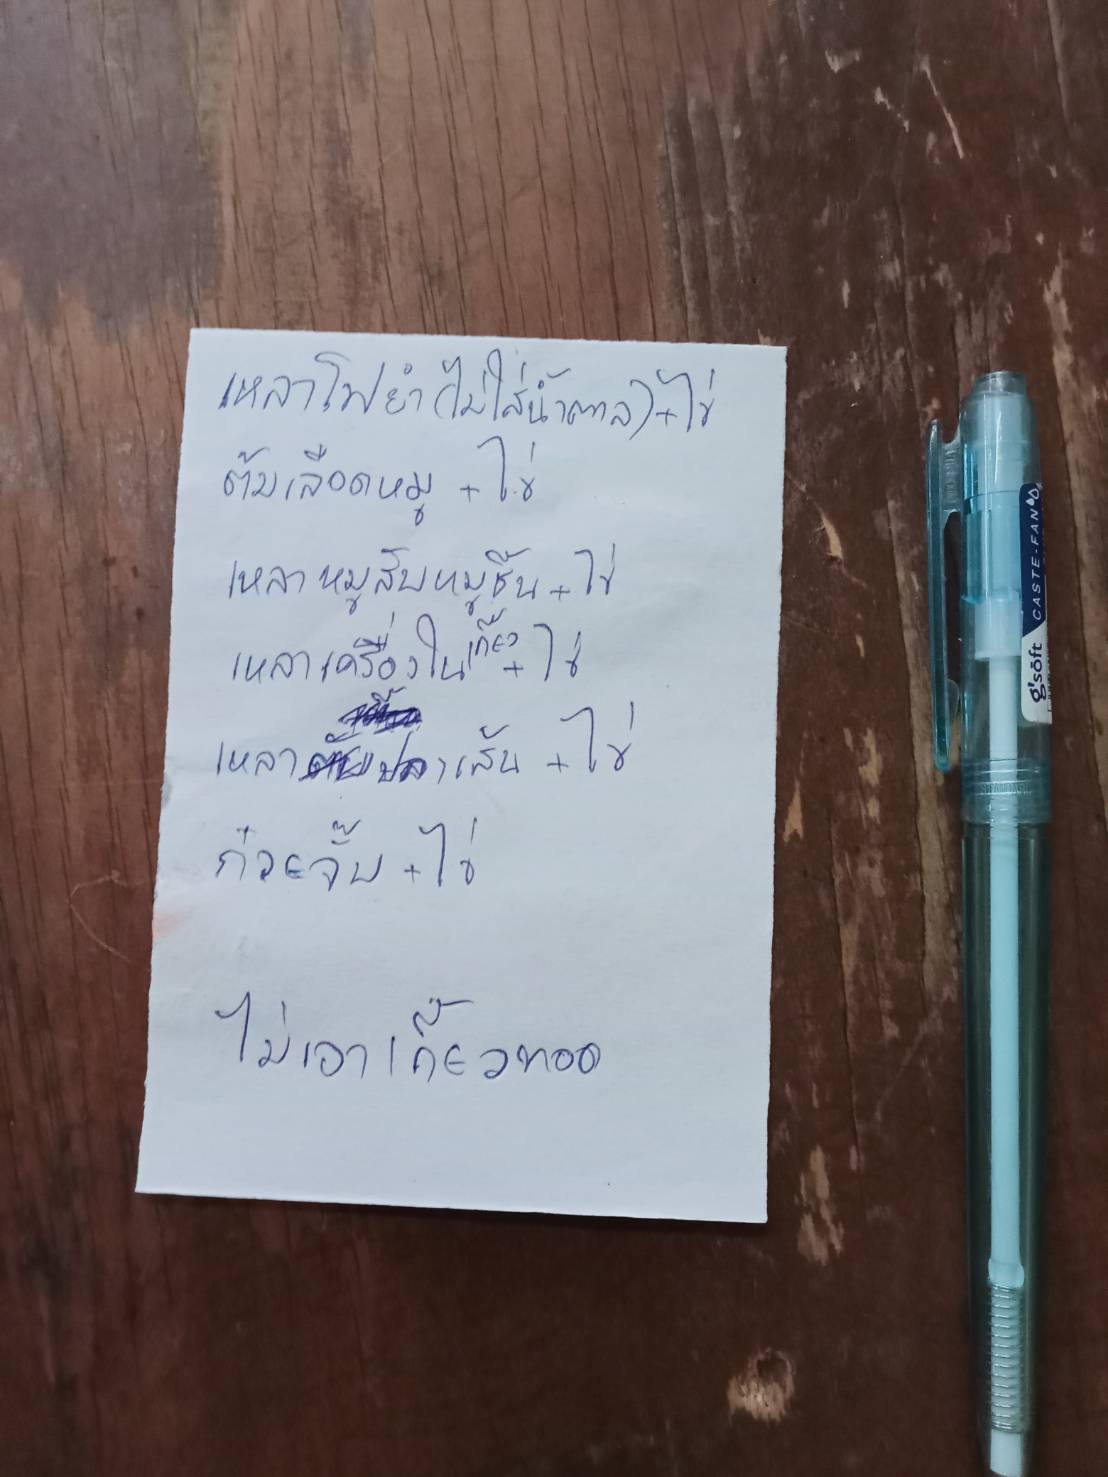 เหลาโฟยำ(ไม่ใส่น้ำตาล)+ไข่
ต้มเลือดหมู +ไข่
เหลา หมูสับหมูชิ้น +ไข่
เหลาเครื่องในเกี๊ยว +ไข่
เหลา ปลาเส้น +ไข่
ก๋วยจั๊บ +ไข่
ไม่เอาเกี๊ยวทอด
g'soft
CASTE-FAN